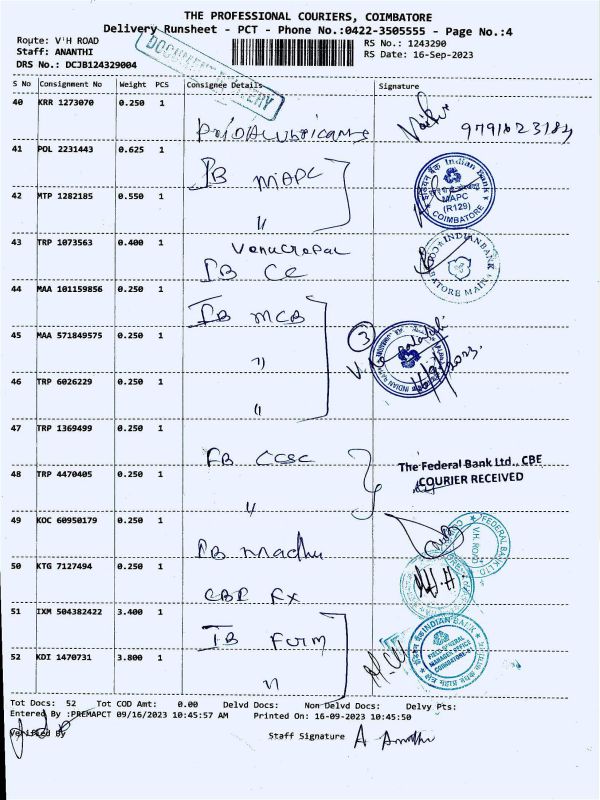 THE PROFESSIONAL COURIERS, COIMBATORE
Delivery Runsheet - PCT - Phone No.:0422-3505555 - Page No.:4
Route: V'H ROAD
RS No.: 1243290
Staff: ANANTHI
RS Date: 16-Sep-2023
DRS No.: DCJB124329004
S No Consignment No Weight PCS Consignee Details Signature
40 KRR 1273070 0.250 1
9791623184
41 POL 2231443 0.625 1
IB MAPC
Indian Bank
MAPC
(R129)
COIMBATORE
42 MTP 1282185 0.550 1
"
43 TRP 1073563 0.400 1
Venugopal
IB CC
INDIANBANK
44 MAA 101159856 0.250 1
IB MCB
45 MAA 571849575 0.250 1
"
3
46 TRP 6026229 0.250 1
"
47 TRP 1369499 0.250 1
FB CCSC
The Federal Bank Ltd., CBE
COURIER RECEIVED
48 TRP 4470405 0.250 1
"
49 KOC 60950179 0.250 1
IB Madhu
FEDERAL BANK LTD
V.H. ROAD
50 KTG 7127494 0.250 1
51 IXM 504382422 3.400 1
IB
INDIAN BANK
52 KDI 1470731 3.800 1
"
Tot Docs: 52 Tot COD Amt: 0.00 Delvd Docs: Non Delvd Docs: Delvy Pts:
Entered By :PREMAPCT 09/16/2023 10:45:57 AM Printed On: 16-09-2023 10:45:50
Verified By
Staff Signature